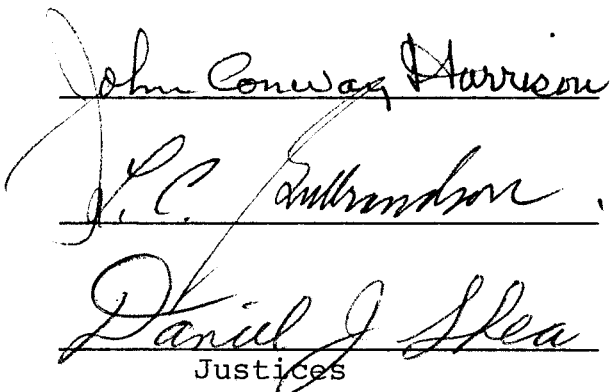 John Conway Harrison
L. C. Gulbrandson
Daniel J Shea
Justices